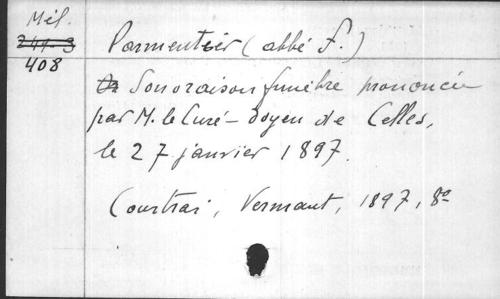 Mél.
244-3
408
Parmentier (abbé F.)
Son oraison funèbre prononcée
par M. le Curé-doyen de Celles,
le 27 janvier 1897.
Courtrai, Vermaut, 1897, 8º